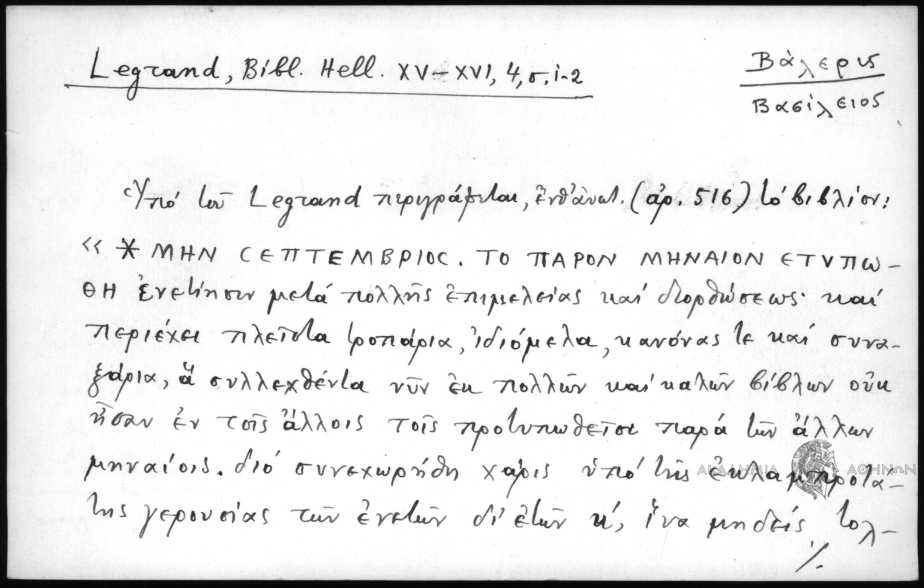 Legrand, Bibl. Hell. XV-XVI, 4, σ. 1-2
Βάλερις
Βασίλειος
Ὑπό τοῦ Legrand περιγράφεται, (ἀρ. 516) τό βιβλίον:
«* ΜΗΝ CΕΠΤΕΜΒΡΙΟC. ΤΟ ΠΑΡΟΝ ΜΗΝΑΙΟΝ ΕΤΥΠΩ-
ΘΗ ἐνετίησιν μετά πολλῆς ἐπιμελείας καί διορθώσεως καί
περιέχει πλεῖστα τροπάρια, ἰδιόμελα, κανόνας τε καί συνα-
ξάρια, ἅ συλλεχθέντα νῦν ἐκ πολλῶν καί καλῶν βίβλων οὐκ
ἦσαν ἐν τοῖς ἄλλοις τοῖς προτυπωθεῖσι παρά τῶν ἄλλων
μηναίοις. διό συνεχωρήθη χάρις ὑπό τῆς ἐκλαμπροτά-
της γερουσίας τῶν ἐνετῶν δι' ἐτῶν κ', ἵνα μηδείς τολ-
./.
ΑΚΑΔΗΜΙΑ ΑΘΗΝΩΝ